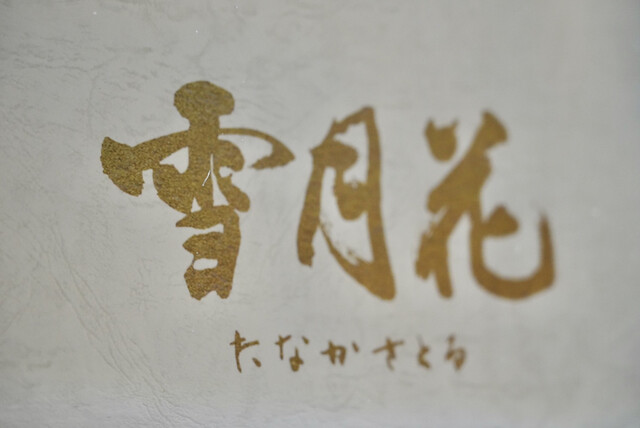 雪月花
たなかさとる